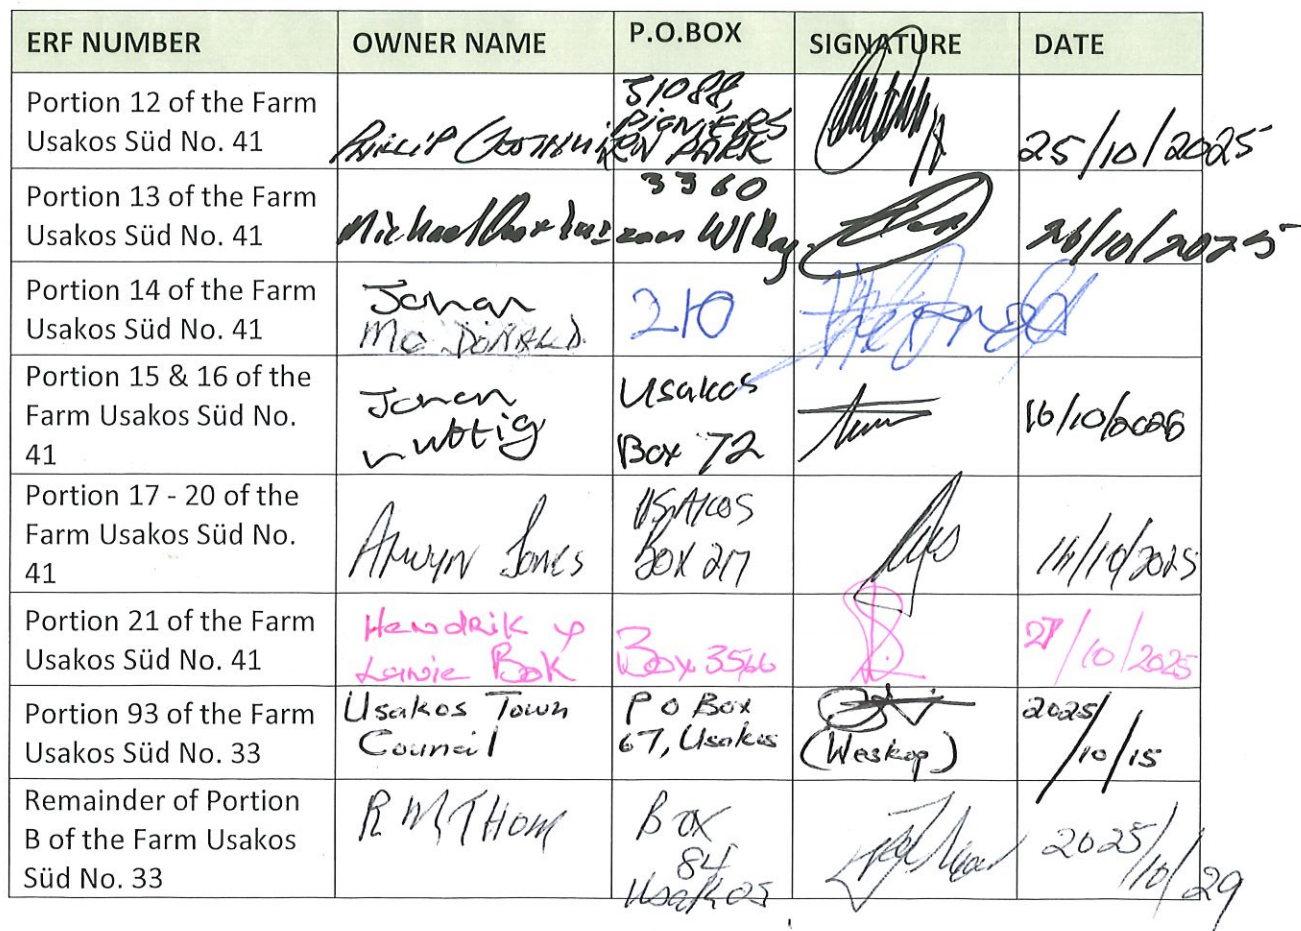 ERF NUMBER OWNER NAME P.O.BOX SIGNATURE DATE
Portion 12 of the Farm
Usakos Süd No. 41
51088,
PIONIERS
PARK
25/10/2025
Portion 13 of the Farm
Usakos Süd No. 41
Michael
3360
W/Bay
26/10/2025
Portion 14 of the Farm
Usakos Süd No. 41
Johan
Mc DONALD
210
Portion 15 & 16 of the
Farm Usakos Süd No.
41
Johan
Usakos
Box 72
16/10/2025
Portion 17 - 20 of the
Farm Usakos Süd No.
41
Alwyn Jones
USAKOS
BOX 217
16/10/2025
Portion 21 of the Farm
Usakos Süd No. 41
Hendrik &
Bok
Box 3566
27/10/2025
Portion 93 of the Farm
Usakos Süd No. 33
Usakos Town
Council
P O Box
67, Usakos
(Weskop)
2025
/10/15
Remainder of Portion
B of the Farm Usakos
Süd No. 33
R M THOM
Box
84
Usakos
2025/
10/29